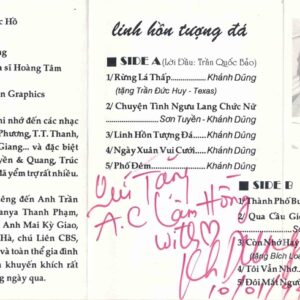 c Hồ
ng
a sĩ Hoàng Tâm
n Graphics
hi đến các nhạc
Phương, T.T. Thanh,
Giang... và đặc biệt
yền & Quang, Trúc
đã yểm trợ rất nhiều.
iêng đến Anh Trần
anya Thanh Phạm,
Anh Mai Kỳ Giao,
Hà, chú Liên CBS,
và toàn thể gia đình
khuyến khích rất
g ngày qua.
linh hồn tượng đá
SIDE A (Lời Dẫu: Trần Quốc Bảo)
1/ Rừng Lá Thấp............Khánh Dũng
(tặng Trần Đức Huy - Texas)
2/ Chuyện Tình Ngưu Lang Chức Nữ
Sơn Tuyền - Khánh Dũng
3/ Linh Hồn Tượng Đá.......Khánh Dũng
4/ Ngày Xuân Vui Cưới......Khánh Dũng
5/ Phố Đêm................Khánh Dũng
Quí Tặng
A.C Cẩm Hồng
with
SIDE B
1/ Thành Phố Bu
2/ Qua Cầu Gi
3/ Còn Nhớ Hay
(tặng Bích Loa
4/ Tôi Vẫn Nhớ
5/ Đôi Mắt Người